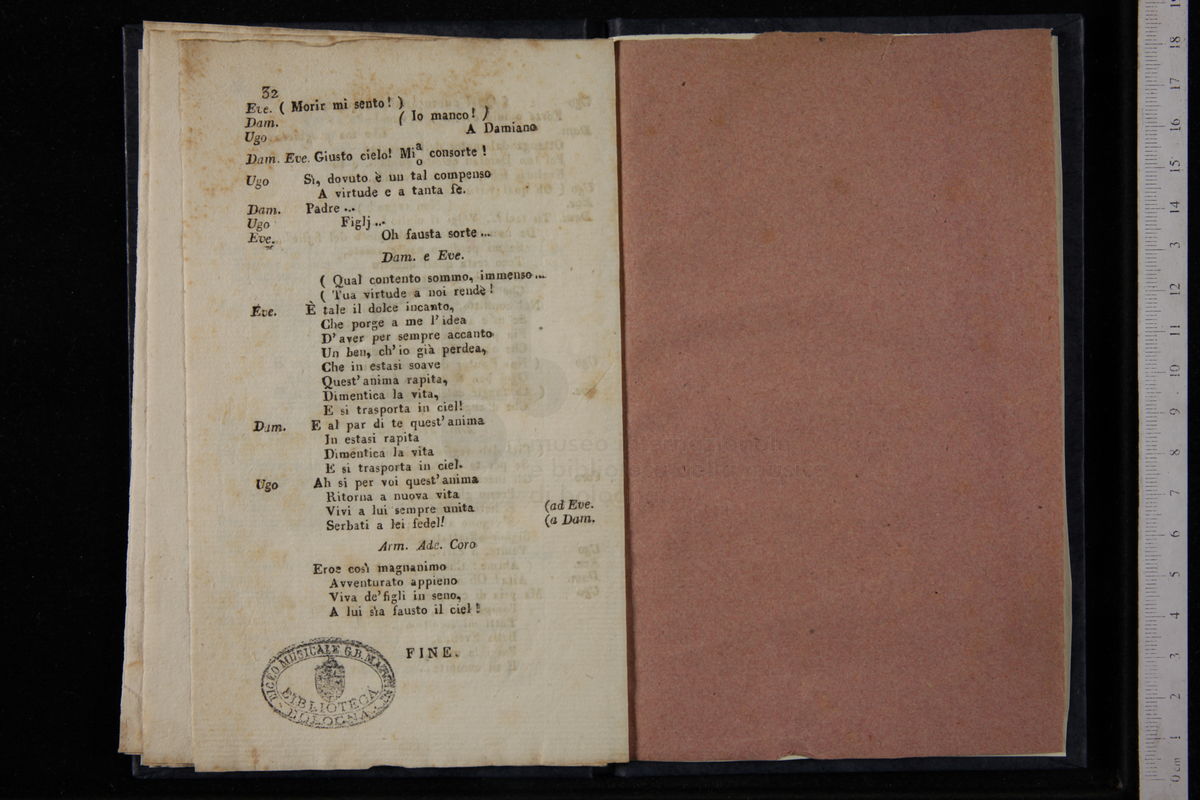 32
Eve. ( Morir mi sento! )
Dam. ( Io manco! )
Ugo A Damiano
Dam. Eve. Giusto cielo! Mi a o consorte !
Ugo Sì, dovuto è un tal compenso
A virtude e a tanta fe.
Dam. Padre ...
Ugo Figlj ...
Eve. Oh fausta sorte ...
Dam. e Eve.
( Qual contento sommo, immenso ...
( Tua virtude a noi rendè !
Eve. È tale il dolce incanto,
Che porge a me l'idea
D'aver per sempre accanto
Un ben, ch'io già perdea,
Che in estasi soave
Quest'anima rapita,
Dimentica la vita,
E si trasporta in ciel!
Dam. E al par di te quest'anima
In estasi rapita
Dimentica la vita
E si trasporta in ciel.
Ugo Ah si per voi quest'anima
Ritorna a nuova vita
Vivi a lui sempre unita (ad Eve.
Serbati a lei fedel! (a Dam.
Arm. Ade. Coro
Eroe così magnanimo
Avventurato appieno
Viva de'figli in seno,
A lui sia fausto il ciel !
FINE.
LICEO MUSICALE G.B. MARTINI
BIBLIOTECA
BOLOGNA
museo
0 cm 1 2 3 4 5 6 7 8 9 10 11 12 13 14 15 16 17 18